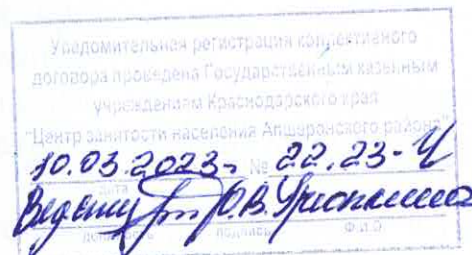 Уведомительная регистрация коллективного
договора проведена Государственным казенным
учреждением Краснодарского края
"Центр занятости населения Апшеронского района"
10.03.2023г. № 22.23-У
дата
Ведущ О.В.
должность подпись Ф.И.О